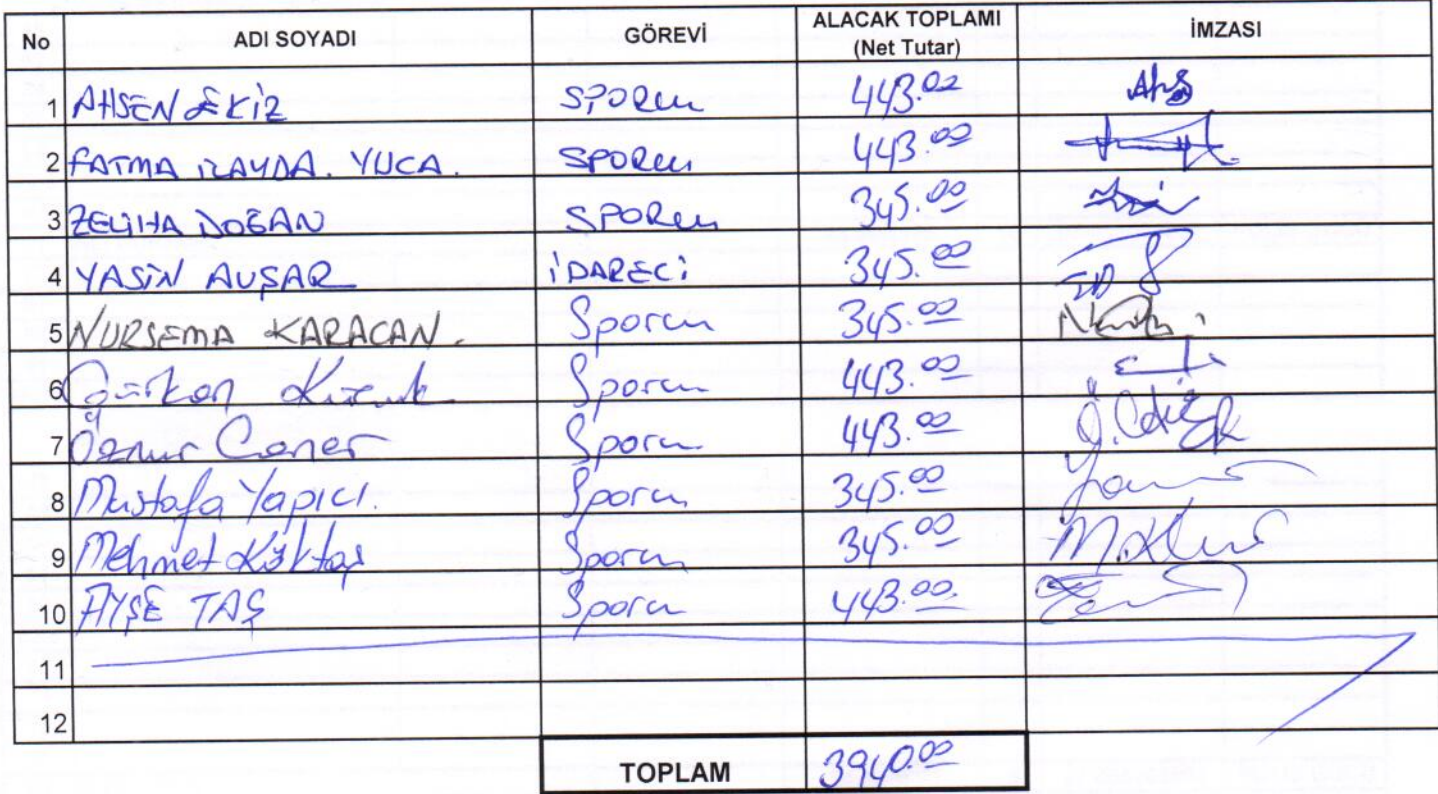 No ADI SOYADI GÖREVİ ALACAK TOPLAMI (Net Tutar) İMZASI
1 AHSEN EKİZ SPORCU 443.00
2 FATMA YUCA. SPORCU 443.00
3 ZELİHA DOĞAN SPORCU 345.00
4 YASİN AVŞAR İDARECİ 345.00
5 NURSEMA KARACAN. Sporcu 345.00
6 Gürkan Sporcu 443.00
7 Öznur Caner Sporcu 443.00
8 Mustafa Yapıcı. Sporcu 345.00
9 Mehmet Köktaş Sporcu 345.00
10 AYŞE TAŞ Sporcu 443.00
11
12
TOPLAM 3940.00